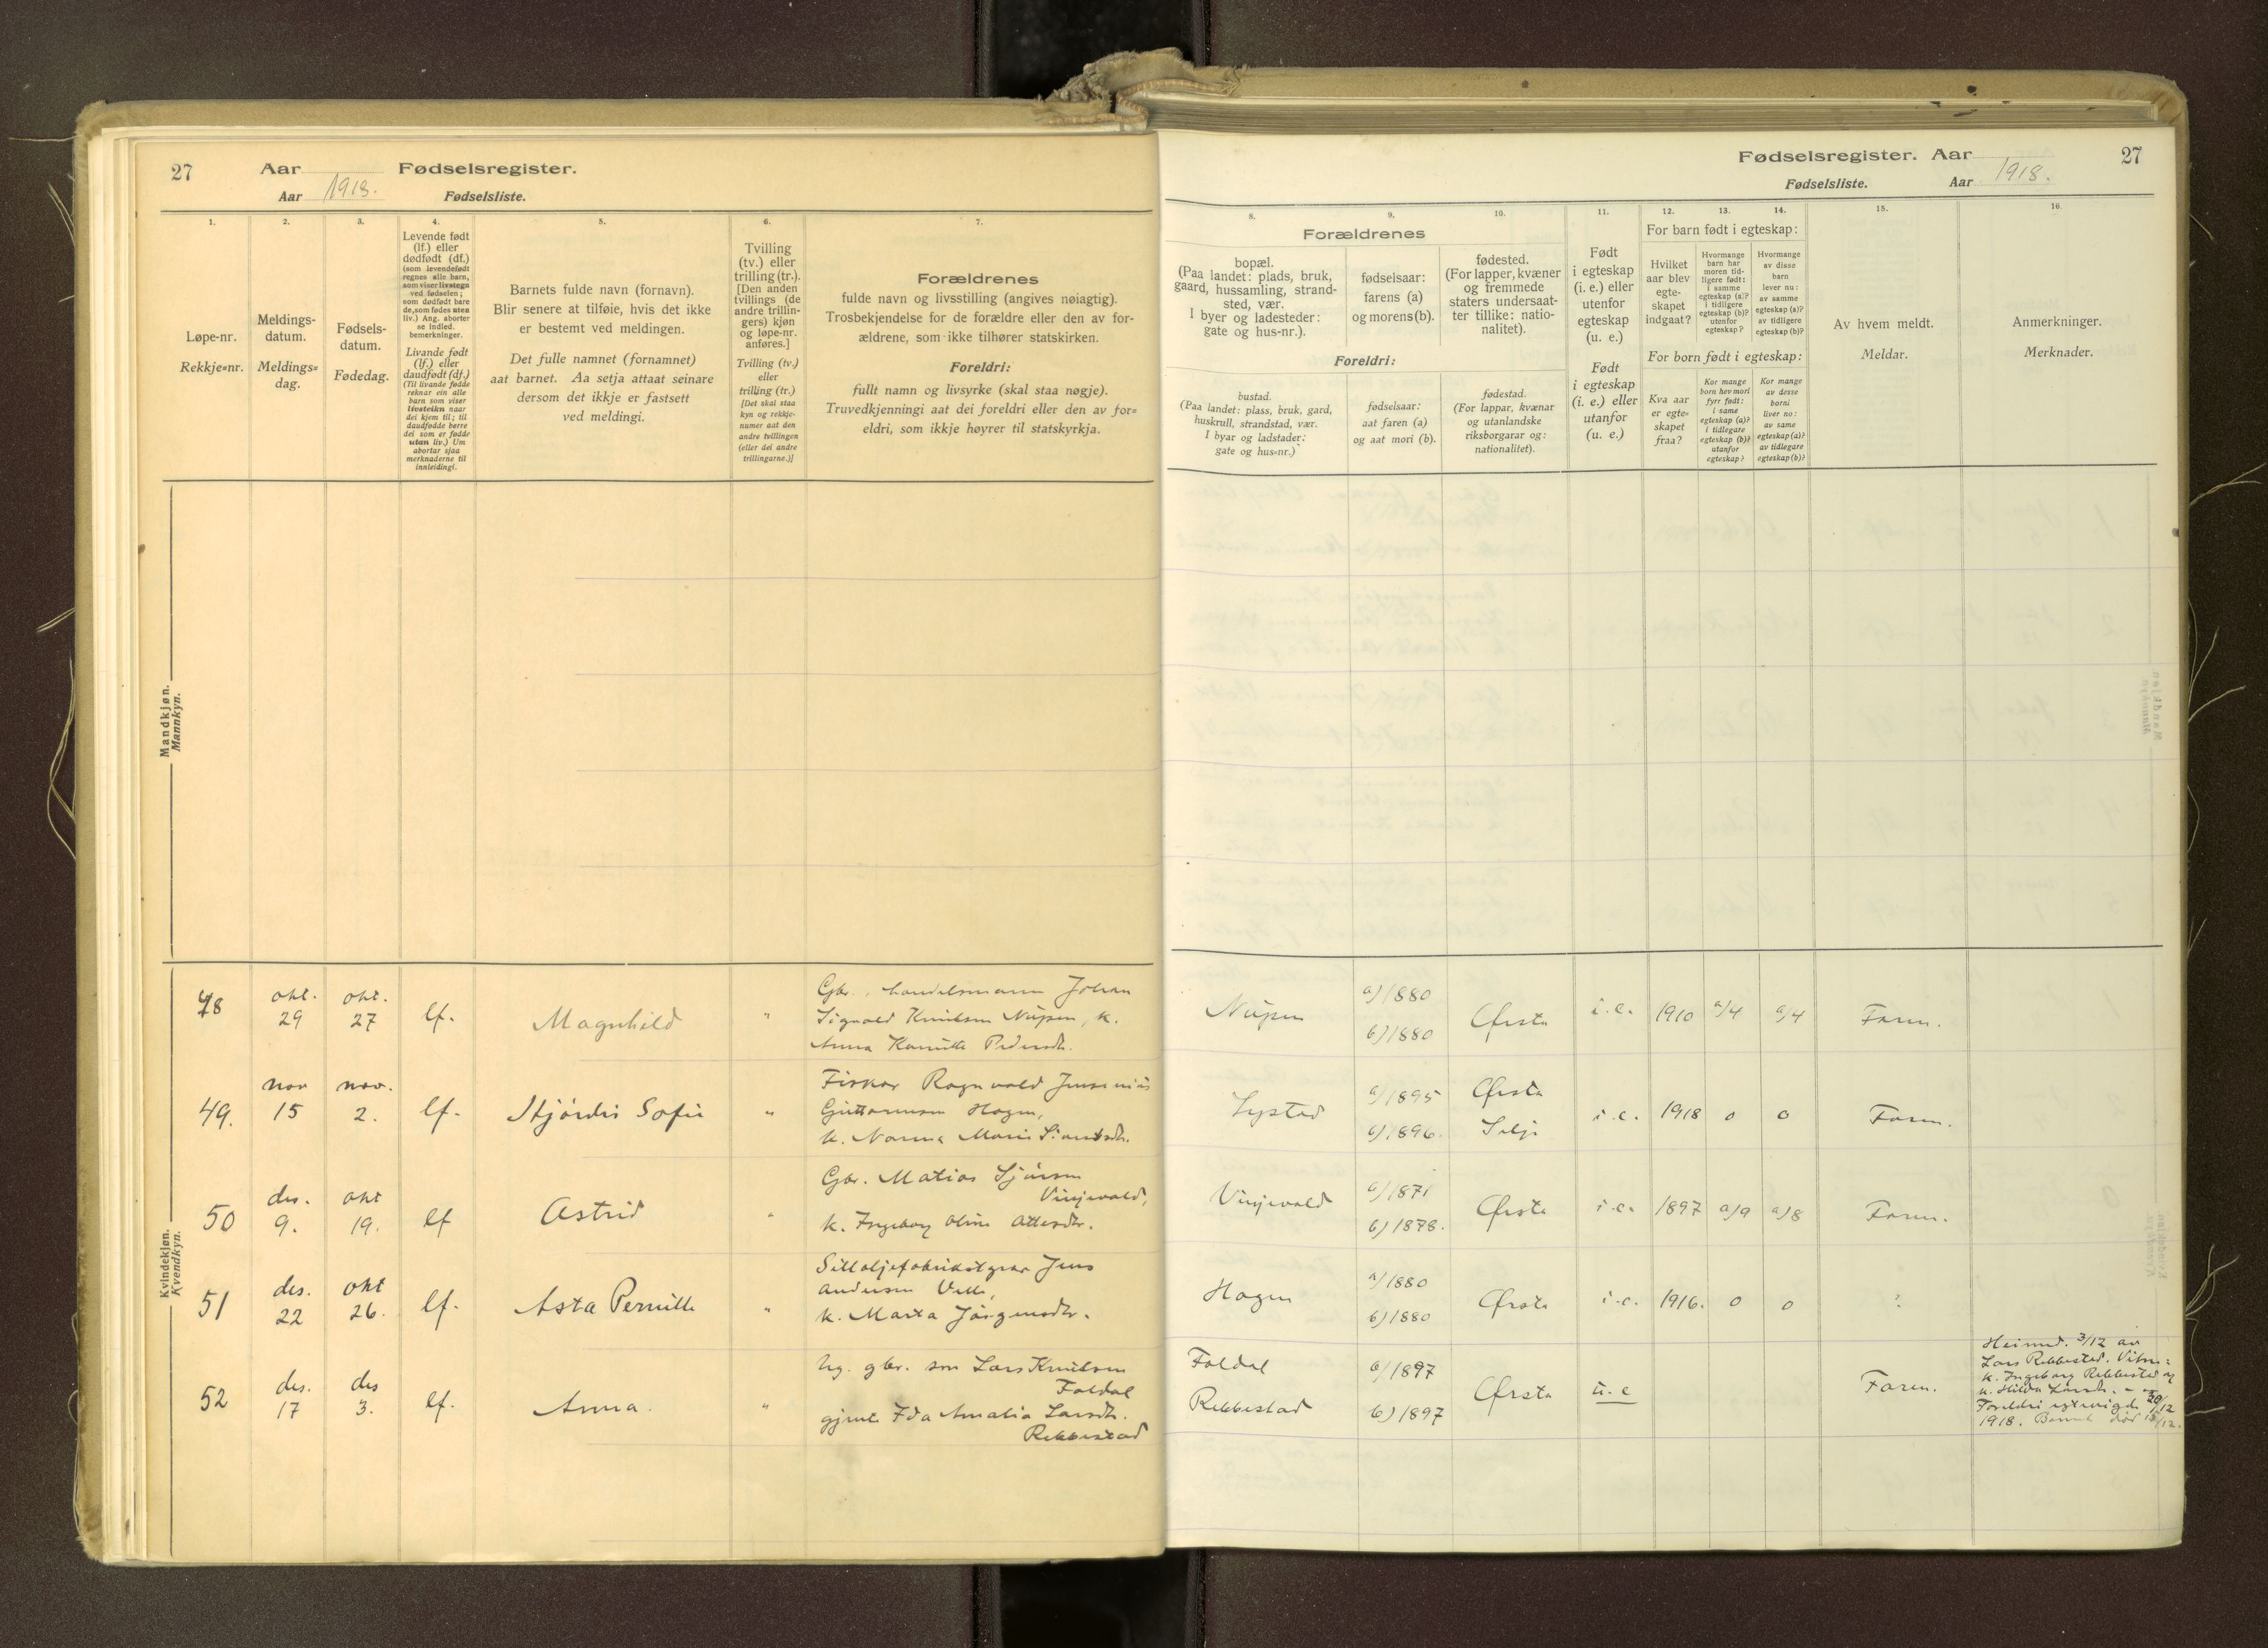 27 Aar Fødselsregister.
Aar 1918. Fødselsliste.
1. 2. 3. 4. 5. 6. 7.
Løpe-nr.
Rekkje=nr.
Meldings-
datum.
Meldings=
dag.
Fødsels-
datum.
Fødedag.
Levende født
(lf.) eller
dødfødt (df.)
(som levendefødt
regnes alle barn,
som viser livstegn
ved fødselen;
som dødfødt bare
de, som fødes uten
liv.) Ang. aborter
se indled.
bemerkninger.
Livande født
(lf.) eller
daudfødt (df.)
(Til livande fødde
reknar ein alle
barn som viser
livsteikn naar
dei kjem til; til
daudfødde berre
dei som er fødde
utan liv.) Um
abortar sjaa
merknaderne til
innleidingi.
Barnets fulde navn (fornavn).
Blir senere at tilføie, hvis det ikke
er bestemt ved meldingen.
Det fulle namnet (fornamnet)
aat barnet. Aa setja attaat seinare
dersom det ikkje er fastsett
ved meldingi.
Tvilling
(tv.) eller
trilling (tr.).
[Den anden
tvillings (de
andre trillin-
gers) kjøn
og løpe-nr.
anføres.]
Tvilling (tv.)
eller
trilling (tr.)
[Det skal staa
kyn og rekkje-
numer aat den
andre tvillingen
(eller dei andre
trillingarne.)]
Forældrenes
fulde navn og livsstilling (angives nøiagtig).
Trosbekjendelse for de forældre eller den av for-
ældrene, som ikke tilhører statskirken.
Foreldri:
fullt namn og livsyrke (skal staa nøgje).
Truvedkjenningi aat dei foreldri eller den av for=
eldri, som ikkje høyrer til statskyrkja.
Mandkjøn.
Mannkyn.
Kvindekjøn.
Kvendkyn.
48 okt. 29 okt. 27 lf. Magnhild "
Gbr., handelsmann Johan
Sigvald Knutsen Nupen, k.
Anna Pedersdt.
49. nov 15 nov. 2. lf. Hjørdis Sofie "
Fiskar Ragnvald
Guttormsen Hagen,
k. Norma Marie
50 des. 9. okt 19. lf Astrid "
Gbr. Matias Sjursen
Vinjevold,
k. Ingeborg Oline Attesdtr.
51 des. 22 okt 26. lf. Asta Pernille "
Sildoljefabrikstyrar Jens
Andersen Velle,
k. Marta Jørgensdtr.
52 des. 17 des 3. lf. Anna. "
Ug. gbr. son Lars Knutsen
Foldal
gjent. Ida Amalia Larsdt.
Rebbestad
Fødselsregister. Aar 27
Fødselsliste. Aar 1918.
8. 9. 10. 11. 12. 13. 14. 15. 16.
Forældrenes
bopæl.
(Paa landet: plads, bruk,
gaard, hussamling, strand-
sted, vær.
I byer og ladesteder:
gate og hus-nr.).
fødselsaar:
farens (a)
og morens (b).
fødested.
(For lapper, kvæner
og fremmede
staters undersaat-
ter tillike: natio-
nalitet).
Foreldri:
bustad.
(Paa landet: plass, bruk, gard,
huskrull, strandstad, vær.
I byar og ladstader:
gate og hus=nr.)
fødselsaar:
aat faren (a)
og aat mori (b).
fødestad.
(For lappar, kvænar
og utanlandske
riksborgarar og:
nationalitet).
Født
i egteskap
(i. e.) eller
utenfor
egteskap
(u. e.)
Født
i egteskap
(i. e.) eller
utanfor
(u. e.)
For barn født i egteskap:
Hvilket
aar blev
egte-
skapet
indgaat?
Hvormange
barn har
moren tid-
ligere født:
i samme
egteskap (a)?
i tidligere
egteskap (b)?
utenfor
egteskap?
Hvormange
av disse
barn
lever nu:
av samme
egteskap (a)?
av tidligere
egteskap (b)?
For born født i egteskap:
Kva aar
er egte=
skapet
fraa?
Kor mange
born hev mori
fyrr født:
i same
egteskap (a)?
i tidlegare
egteskap (b)?
utanfor
egteskap?
Kor mange
av desse
borni
liver no:
av same
egteskap (a)?
av tidlegare
egteskap (b)?
Av hvem meldt.
Meldar.
Anmerkninger.
Merknader.
Nupen a) 1880 b) 1880 Ørsta i.e. 1910 a/4 a/4 Faren.
Lystad a) 1895 Ørsta b) 1896. Selje i.e. 1918 0 0 Faren.
Vinjevold a) 1871 b) 1878. Ørsta i.e. 1897 a/9 a/8 Faren.
Hagen a) 1880 b) 1880 Ørsta i.e. 1916. 0 0 ?
Foldal a) 1897
Rebbestad b) 1897 Ørsta u.e Faren.
Heimed. 3/12 av
Lars Rebbestad. Vitne:
k. Ingeborg Rebbestad og
k. Hilda Larsdt. -
Foreldri egtevigde 28/12
1918. Barnet død 15/12.